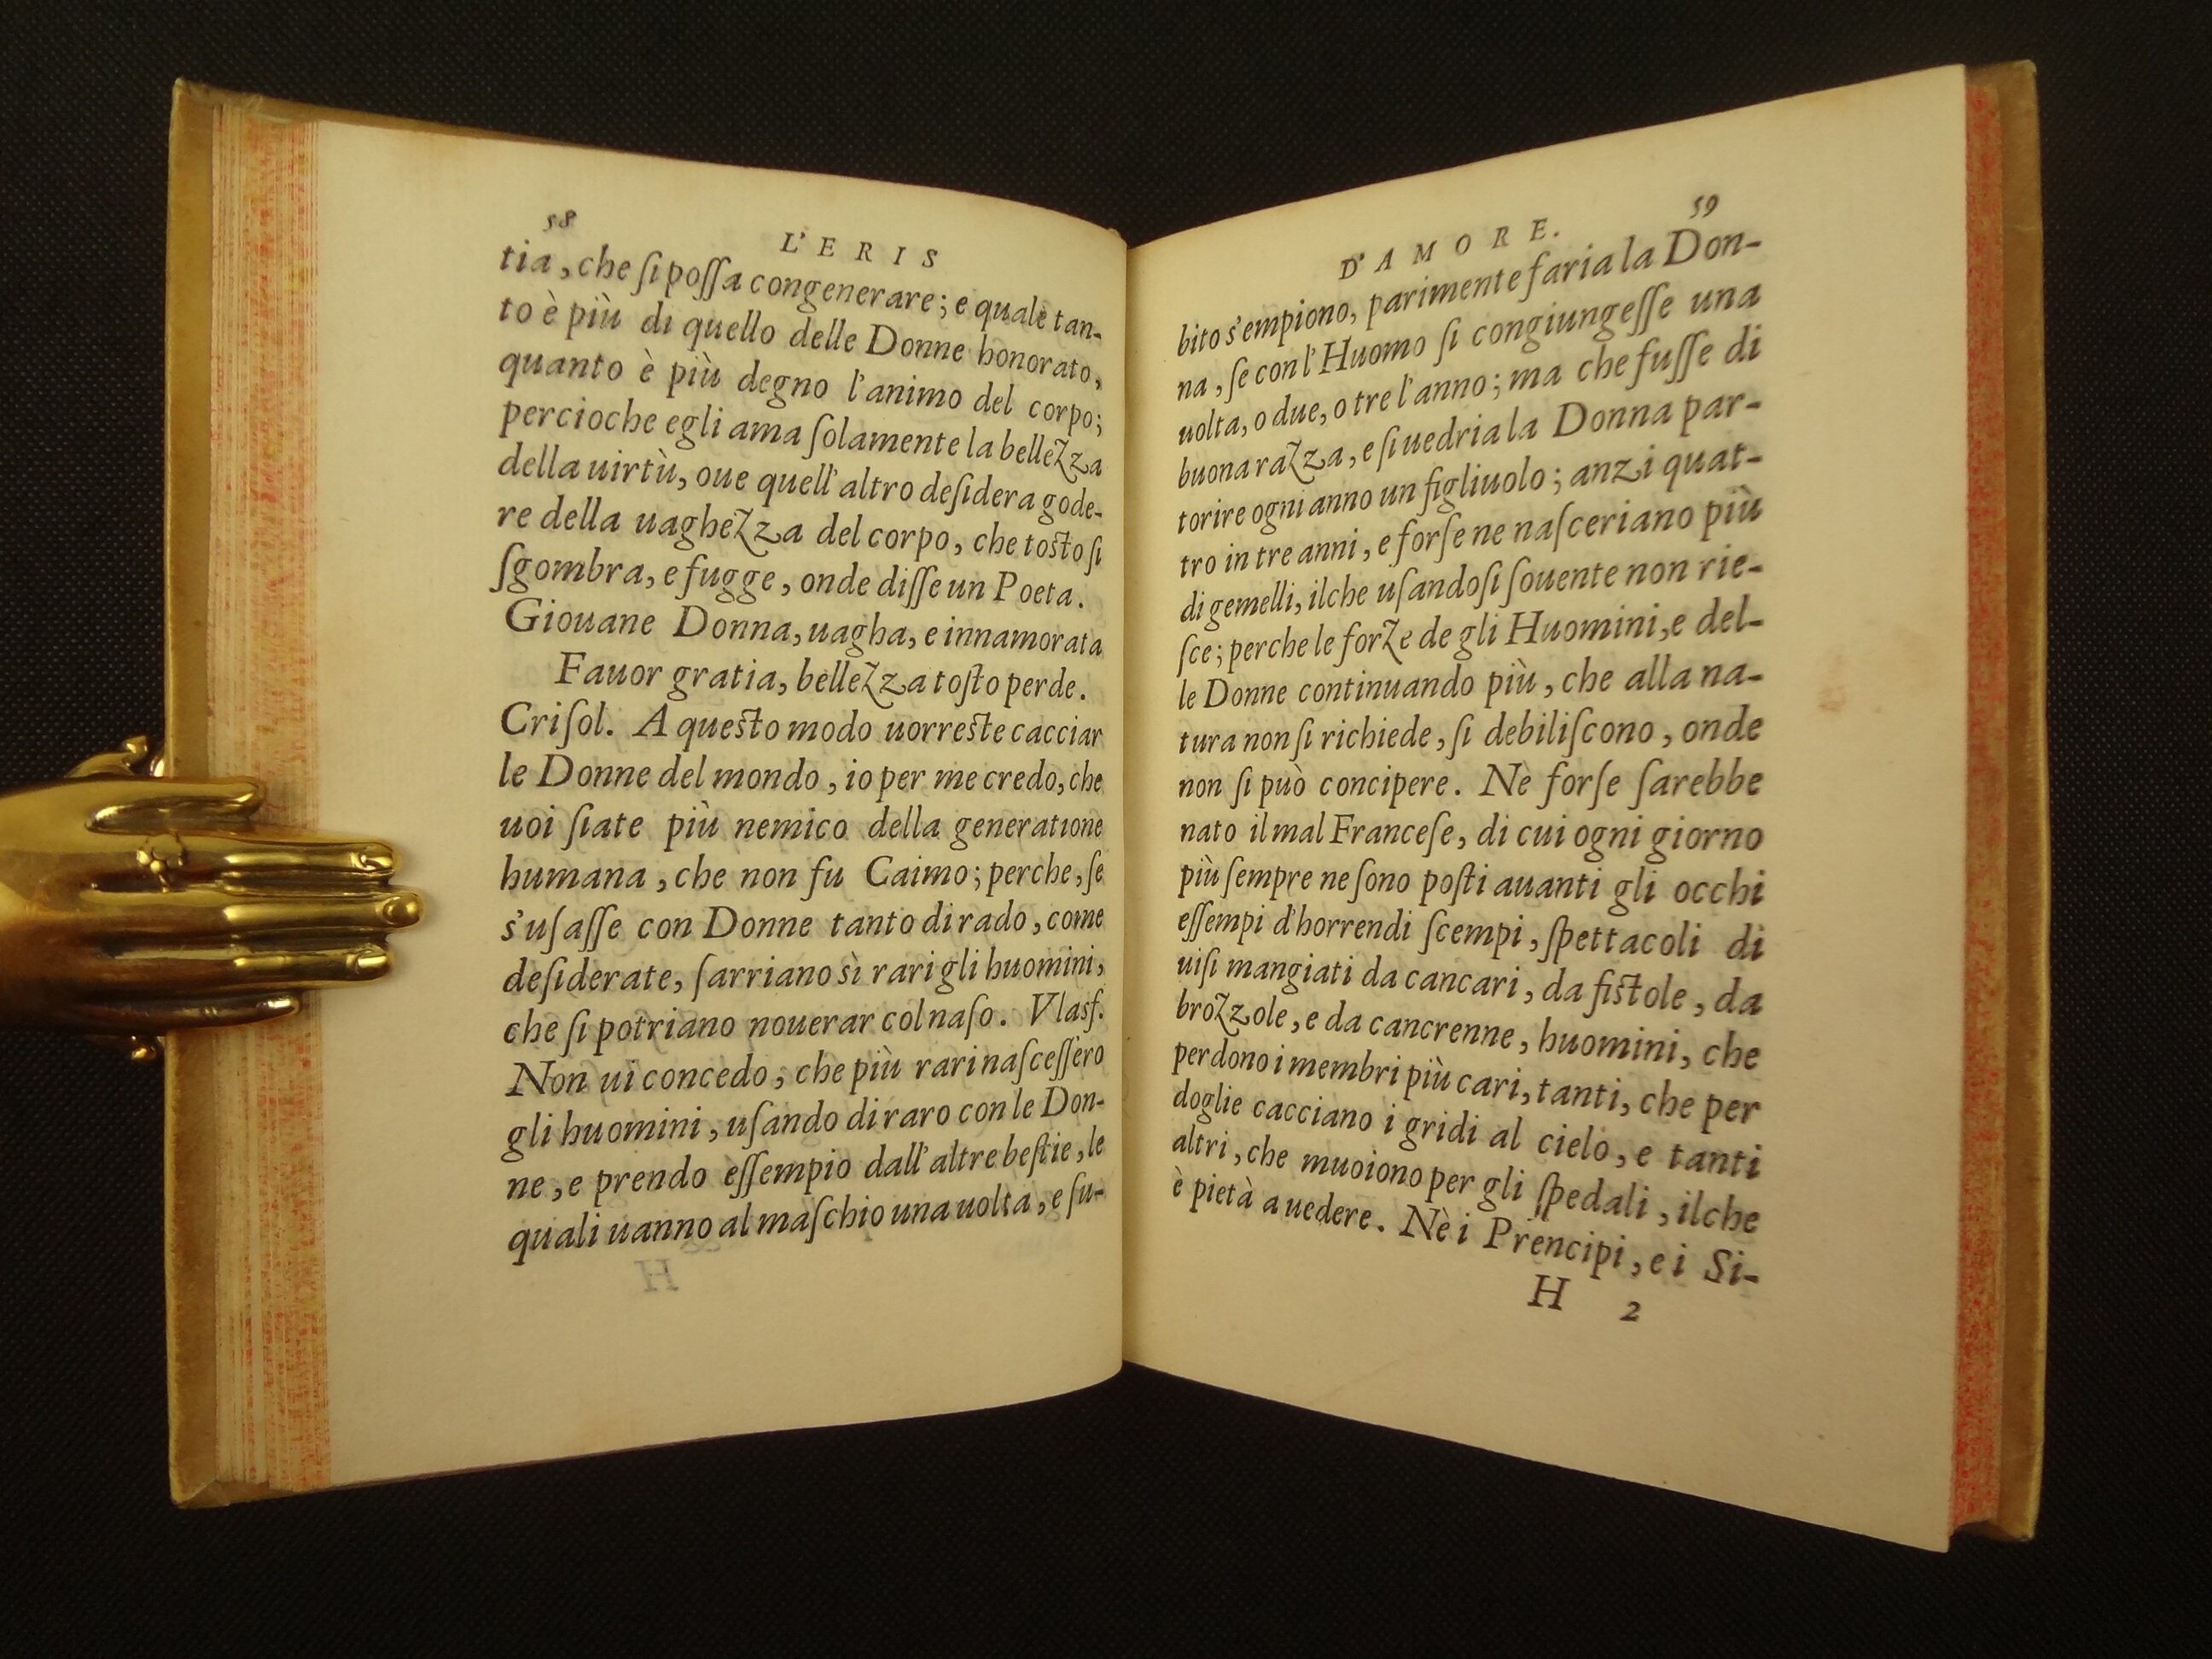 58
L'ERIS
tia, che ſi poſſa congenerare; e quale tan-
to è più di quello delle Donne honorato,
quanto è più degno l'animo del corpo;
percioche egli ama ſolamente la bellezza
della uirtù, oue quell'altro deſidera gode-
re della uaghezza del corpo, che toſto ſi
ſgombra, e fugge, onde diſſe un Poeta.
Giouane Donna, uagha, e innamorata
Fauor gratia, bellezza toſto perde.
Criſol. A queſto modo uorreſte cacciar
le Donne del mondo, io per me credo, che
uoi ſiate più nemico della generatione
humana, che non fu Caimo; perche, ſe
s'uſaſſe con Donne tanto di rado, come
deſiderate, ſarriano sì rari gli huomini,
che ſi potriano nouerar col naſo. Vlasf.
Non ui concedo, che più rari naſceſſero
gli huomini, uſando di raro con le Don-
ne, e prendo eſſempio dall'altre beſtie, le
quali uanno al maſchio una uolta, e ſu-
59
D'AMORE.
bito s'empiono, parimente faria la Don-
na, ſe con l'Huomo ſi congiungeſſe una
uolta, o due, o tre l'anno; ma che fuſſe di
buona razza, e ſi uedria la Donna par-
torire ogni anno un figliuolo; anzi quat-
tro in tre anni, e forſe ne naſceriano più
di gemelli, ilche uſandoſi ſouente non rie-
ſce; perche le forze de gli Huomini, e del-
le Donne continuando più, che alla na-
tura non ſi richiede, ſi debiliſcono, onde
non ſi può concipere. Nè forſe ſarebbe
nato il mal Franceſe, di cui ogni giorno
più ſempre ne ſono poſti auanti gli occhi
eſſempi d'horrendi ſcempi, ſpettacoli di
uiſi mangiati da cancari, da fiſtole, da
brozzole, e da cancrenne, huomini, che
perdono i membri più cari, tanti, che per
doglie cacciano i gridi al cielo, e tanti
altri, che muoiono per gli ſpedali, ilche
è pietà a uedere. Nè i Prencipi, e i Si-
H 2